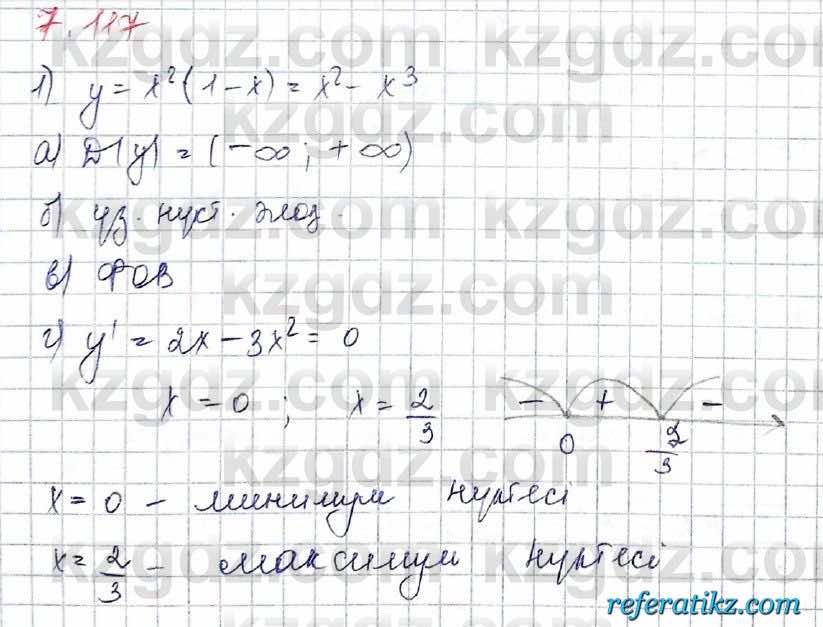 7.117
1) y = x²(1 - x) = x² - x³
а) D(y) = (-∞; +∞)
б) үз. нүкт.
в) ФОВ
г) y' = 2x - 3x² = 0
x = 0 ; x = 2/3
- + -
0 2/3
x = 0 - минимум нүктесі
x = 2/3 - максимум нүктесі
referatikz.com
kzgdz.com